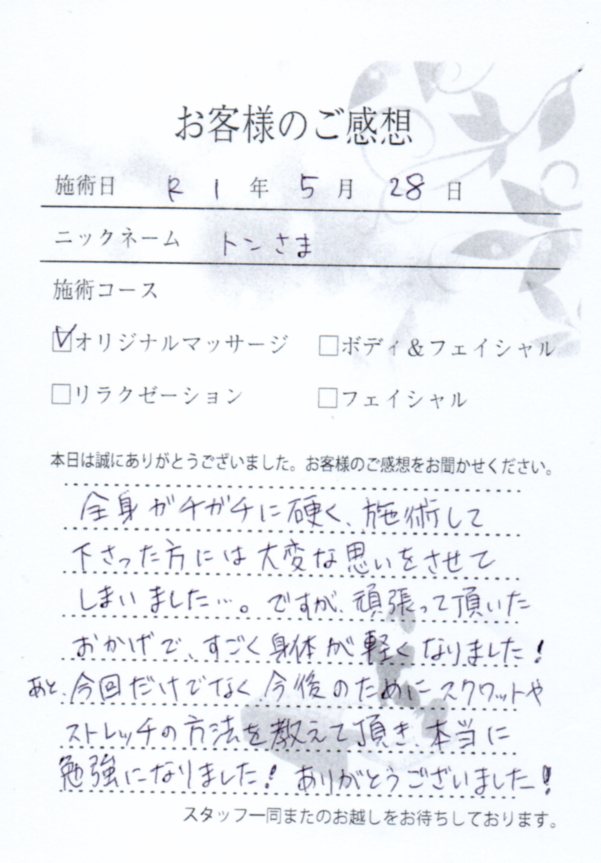 お客様のご感想
施術日 R 1 年 5 月 28 日
ニックネーム トンさま
施術コース
☑オリジナルマッサージ □ボディ＆フェイシャル
□リラクゼーション □フェイシャル
本日は誠にありがとうございました。お客様のご感想をお聞かせください。
全身ガチガチに硬く、施術して
下さった方には大変な思いをさせて
しまいました…。ですが、頑張って頂いた
おかげで、すごく身体が軽くなりました！
あと、今回だけでなく今後のためにスクワットや
ストレッチの方法を教えて頂き、本当に
勉強になりました！ありがとうございました！
スタッフ一同またのお越しをお待ちしております。